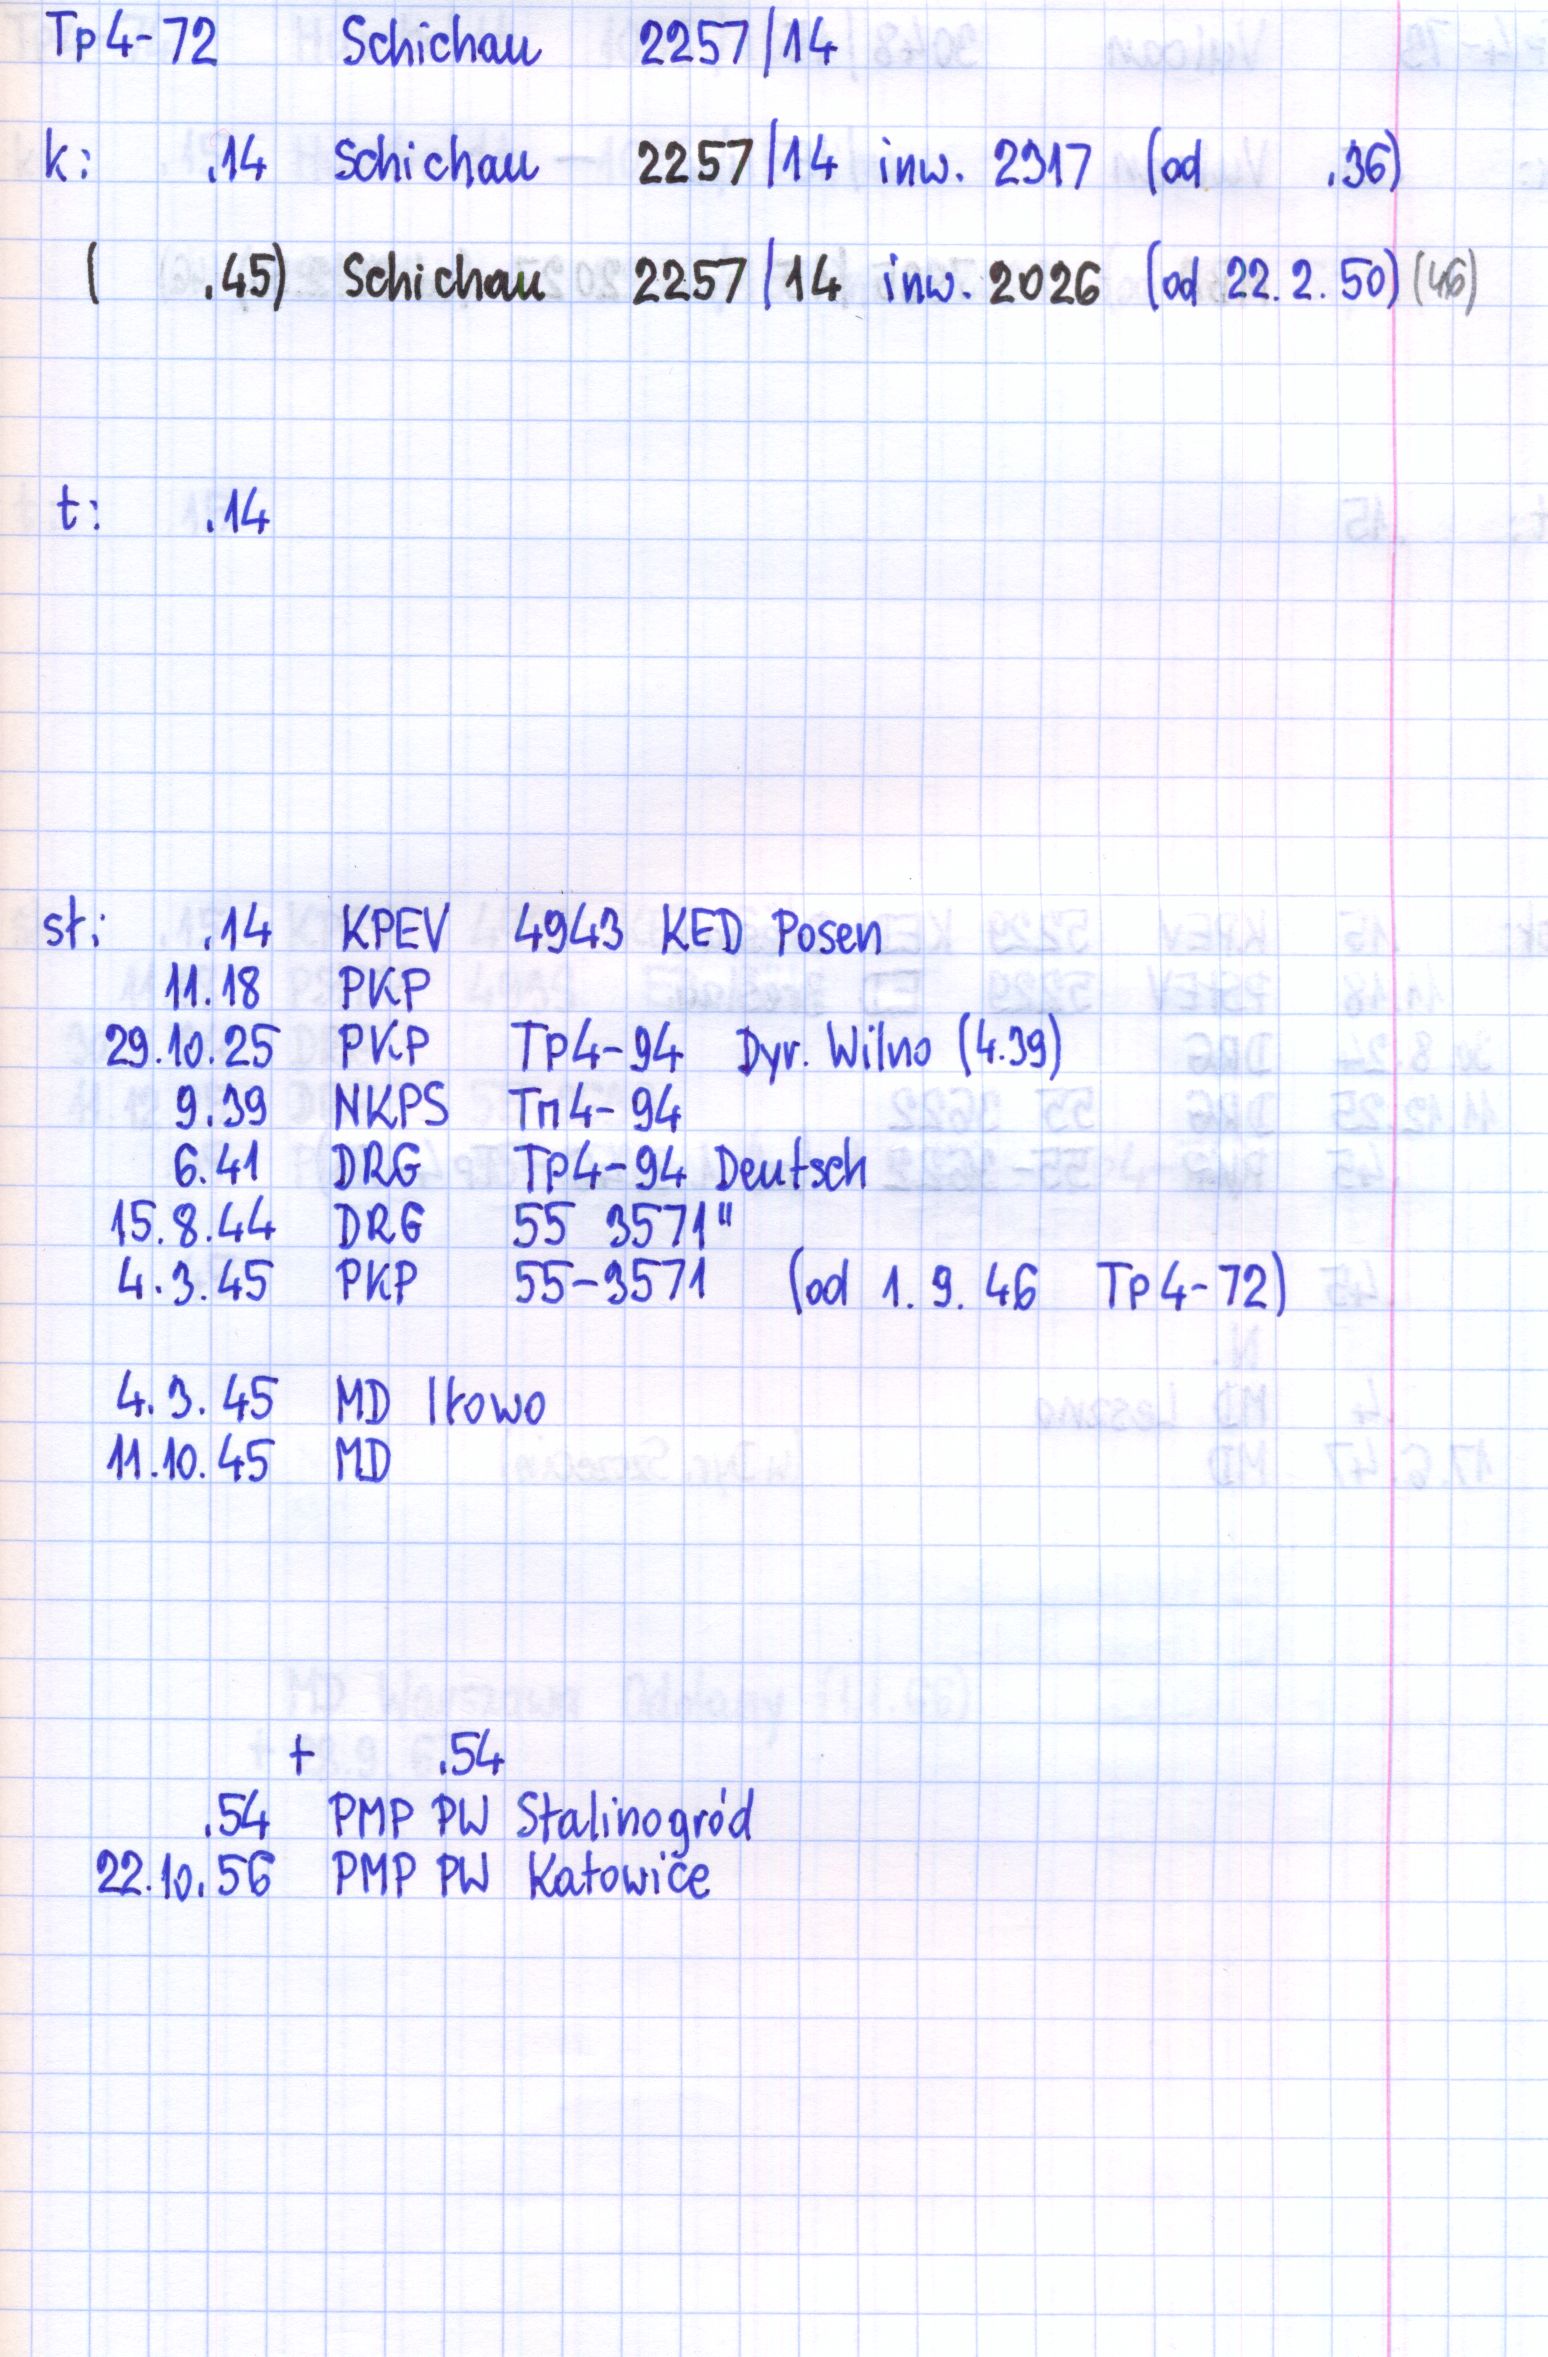 Tp4-72 Schichau 2257/14
k: .14 Schichau 2257/14 inw. 2317 (od .36)
( .45) Schichau 2257/14 inw. 2026 (od 22.2.50) (46)
t: .14
st: .14 KPEV 4943 KED Posen
11.18 PKP
29.10.25 PKP Tp4-94 Dyr. Wilno (4.39)
9.39 NKPS Тп4-94
6.41 DRG Tp4-94 Deutsch
15.8.44 DRG 55 3571"
4.3.45 PKP 55-3571 (od 1.9.46 Tp4-72)
4.3.45 MD Iłowo
11.10.45 MD
+ .54
.54 PMP PW Stalinogród
22.10.56 PMP PW Katowice